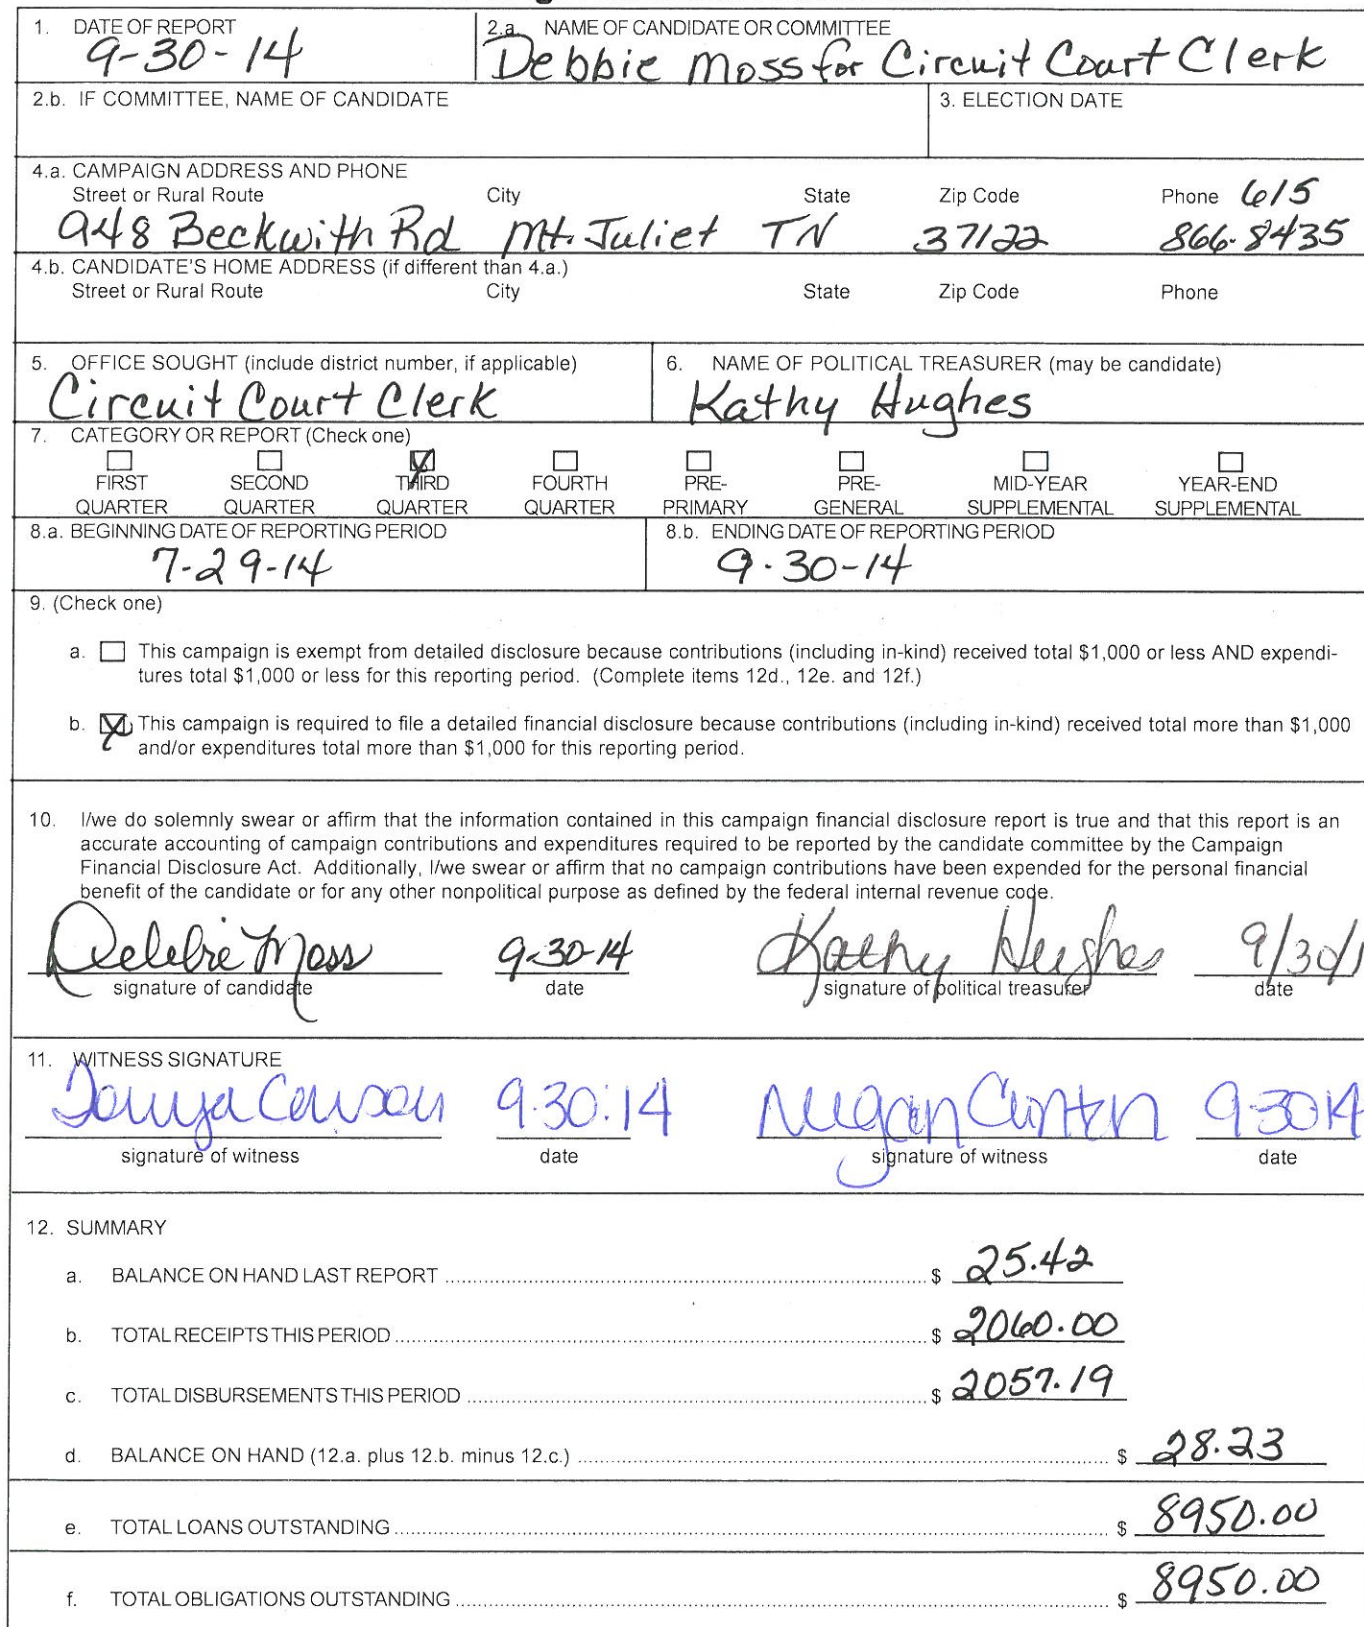 1. DATE OF REPORT
9-30-14
2.a. NAME OF CANDIDATE OR COMMITTEE
Debbie Moss for Circuit Court Clerk
2.b. IF COMMITTEE, NAME OF CANDIDATE
3. ELECTION DATE
4.a. CAMPAIGN ADDRESS AND PHONE
Street or Rural Route City State Zip Code Phone 615
948 Beckwith Rd Mt. Juliet TN 37122 866-8435
4.b. CANDIDATE'S HOME ADDRESS (if different than 4.a.)
Street or Rural Route City State Zip Code Phone
5. OFFICE SOUGHT (include district number, if applicable)
Circuit Court Clerk
6. NAME OF POLITICAL TREASURER (may be candidate)
Kathy Hughes
7. CATEGORY OR REPORT (Check one)
FIRST SECOND THIRD FOURTH PRE- PRE- MID-YEAR YEAR-END
QUARTER QUARTER QUARTER QUARTER PRIMARY GENERAL SUPPLEMENTAL SUPPLEMENTAL
8.a. BEGINNING DATE OF REPORTING PERIOD
7-29-14
8.b. ENDING DATE OF REPORTING PERIOD
9-30-14
9. (Check one)
a. This campaign is exempt from detailed disclosure because contributions (including in-kind) received total $1,000 or less AND expendi-
tures total $1,000 or less for this reporting period. (Complete items 12d., 12e. and 12f.)
b. This campaign is required to file a detailed financial disclosure because contributions (including in-kind) received total more than $1,000
and/or expenditures total more than $1,000 for this reporting period.
10. I/we do solemnly swear or affirm that the information contained in this campaign financial disclosure report is true and that this report is an
accurate accounting of campaign contributions and expenditures required to be reported by the candidate committee by the Campaign
Financial Disclosure Act. Additionally, I/we swear or affirm that no campaign contributions have been expended for the personal financial
benefit of the candidate or for any other nonpolitical purpose as defined by the federal internal revenue code.
Debbie Moss 9-30-14 Kathy Hughes 9/30/1
signature of candidate date signature of political treasurer date
11. WITNESS SIGNATURE
Tonya 9.30.14 Megan Clinton 9-30-14
signature of witness date signature of witness date
12. SUMMARY
a. BALANCE ON HAND LAST REPORT $ 25.42
b. TOTAL RECEIPTS THIS PERIOD $ 2060.00
c. TOTAL DISBURSEMENTS THIS PERIOD $ 2057.19
d. BALANCE ON HAND (12.a. plus 12.b. minus 12.c.) $ 28.23
e. TOTAL LOANS OUTSTANDING $ 8950.00
f. TOTAL OBLIGATIONS OUTSTANDING $ 8950.00